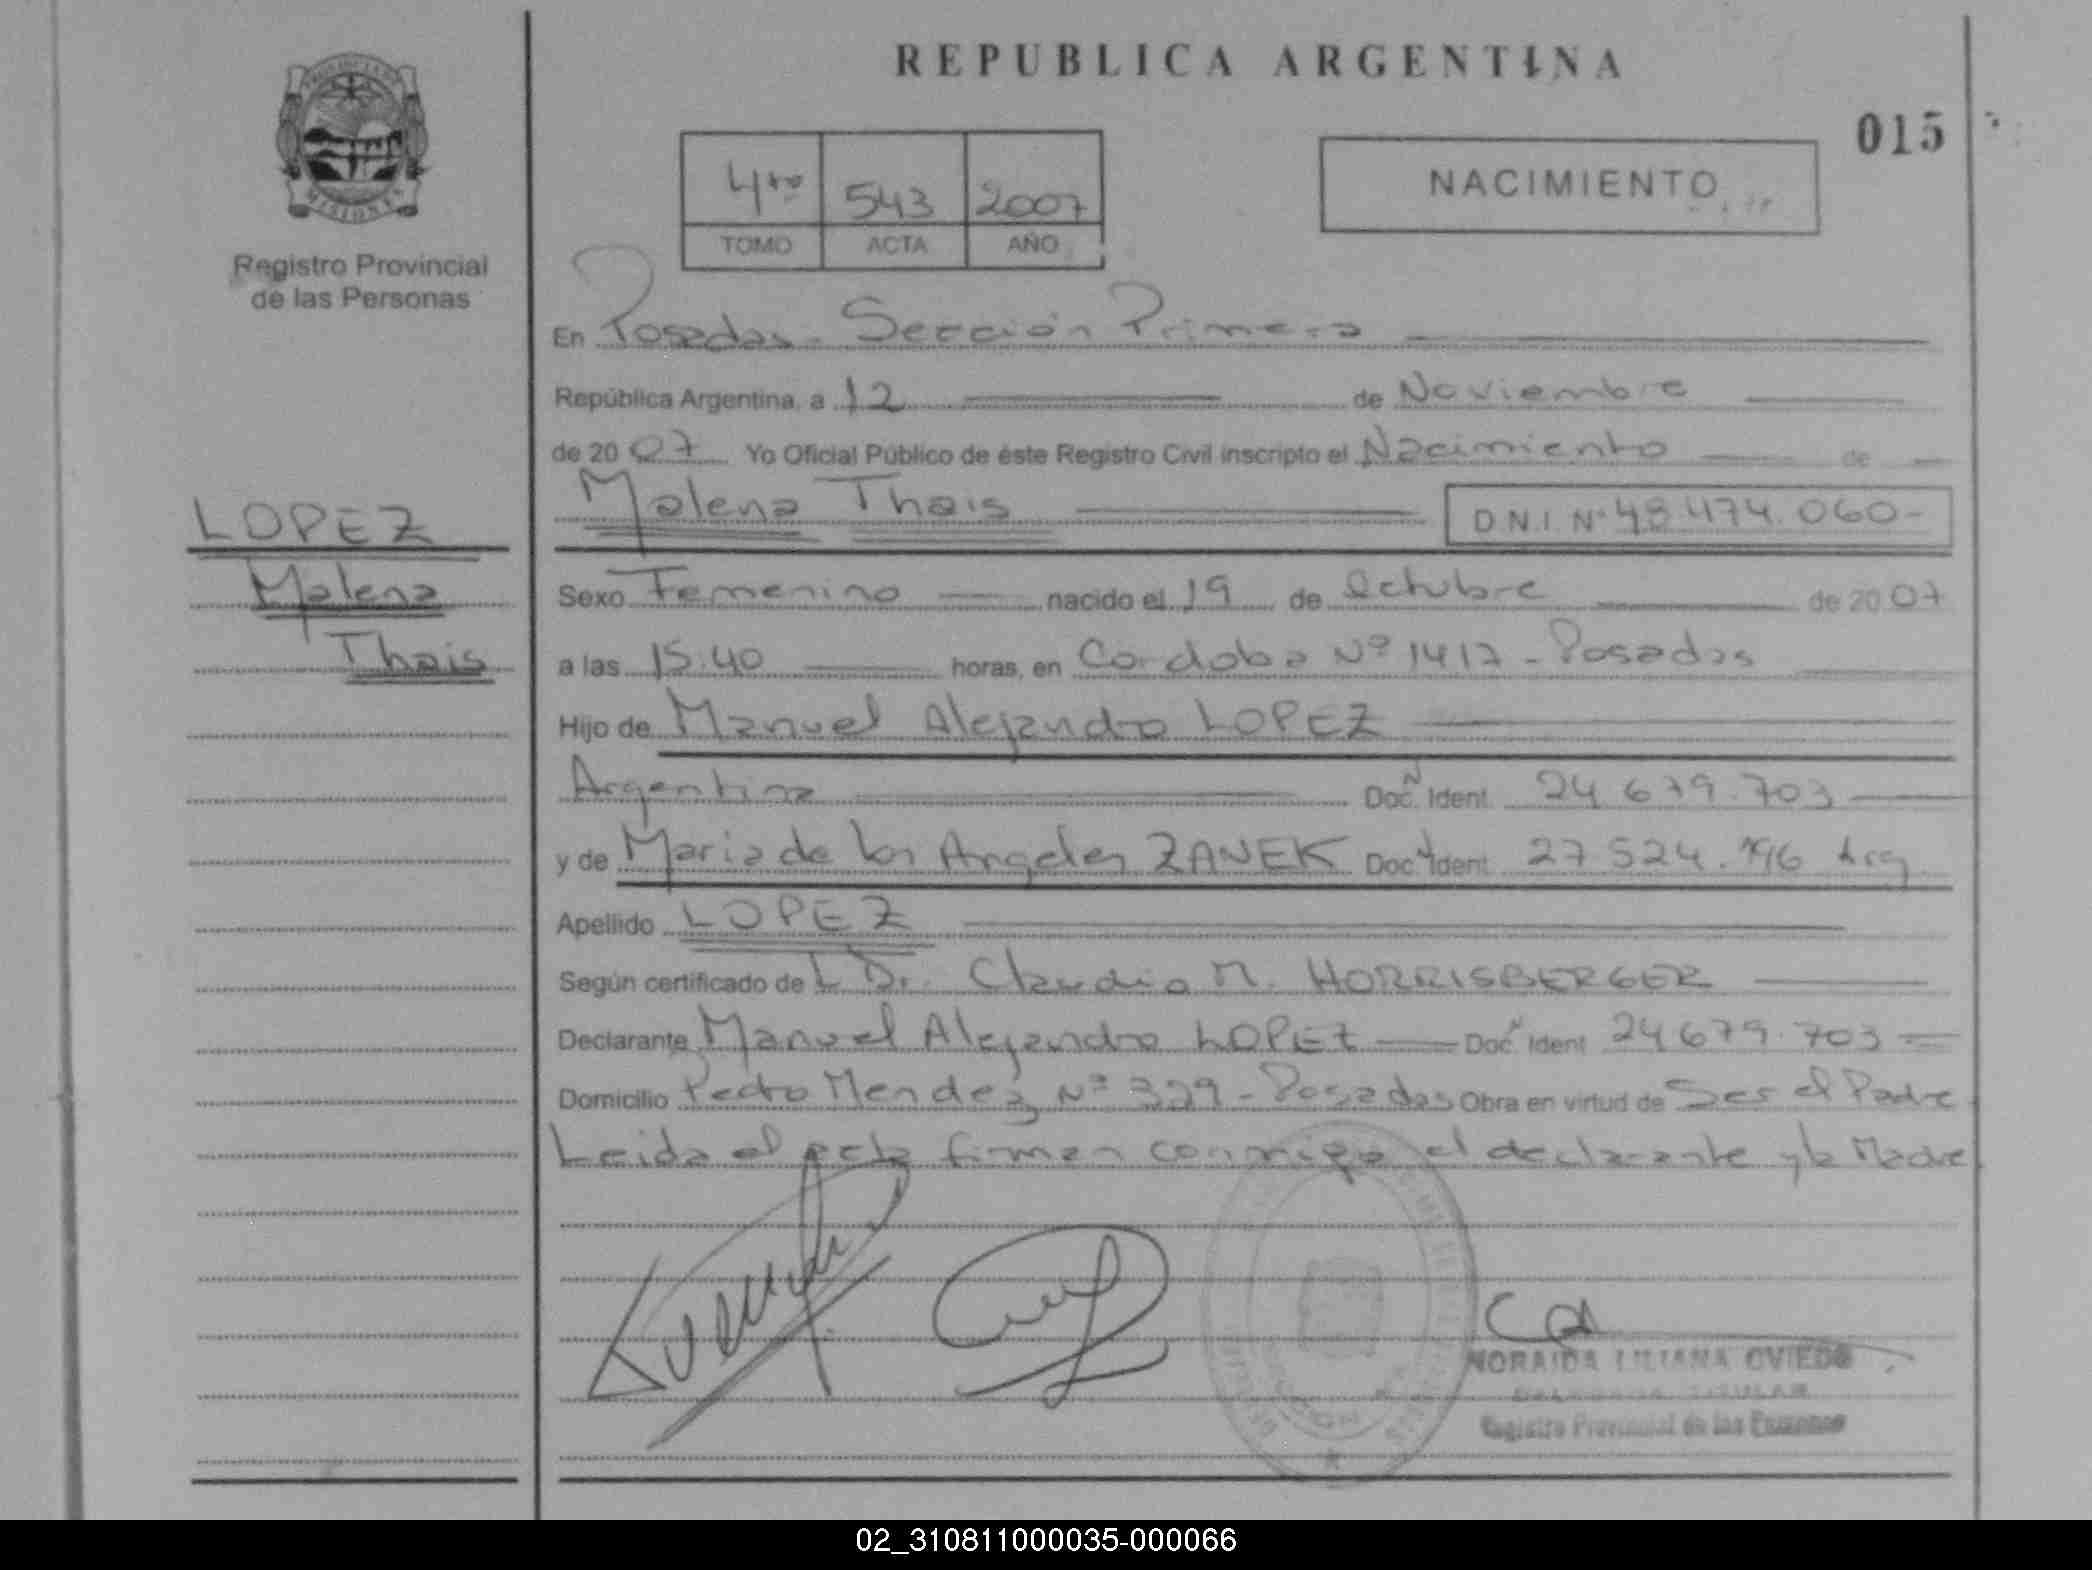 REPUBLICA ARGENTINA
015
PROVINCIA DE
MISIONES
Registro Provincial
de las Personas
4to 543 2007
TOMO ACTA AÑO
NACIMIENTO
En Posadas - Sección Primera
República Argentina, a 12 de Noviembre
de 2007 Yo Oficial Público de éste Registro Civil inscripto el Nacimiento de
Malena Thais D.N.I. Nº 48.474.060-
LOPEZ
Malena
Thais
Sexo Femenino nacido el 19 de Octubre de 2007
a las 15:40 horas, en Cordoba Nº 1417 - Posadas
Hijo de Manuel Alejandro LOPEZ
Argentina Doc. Ident. 24.679.703
y de Maria de los Angeles ZANEK Doc. Ident. 27.524. Arg
Apellido LOPEZ
Según certificado de L Dr. Claudio M. HORRISBERGER
Declarante Manuel Alejandro LOPEZ Doc. Ident 24679.703
Domicilio Pedro Mendez Nº 329 - Posadas Obra en virtud de Ser el Padre
Leida el acta firman conmigo el declarante y la Madre
NORAIDA LILIANA OVIEDO
TITULAR
Registro Provincial de las Personas
02_310811000035-000066